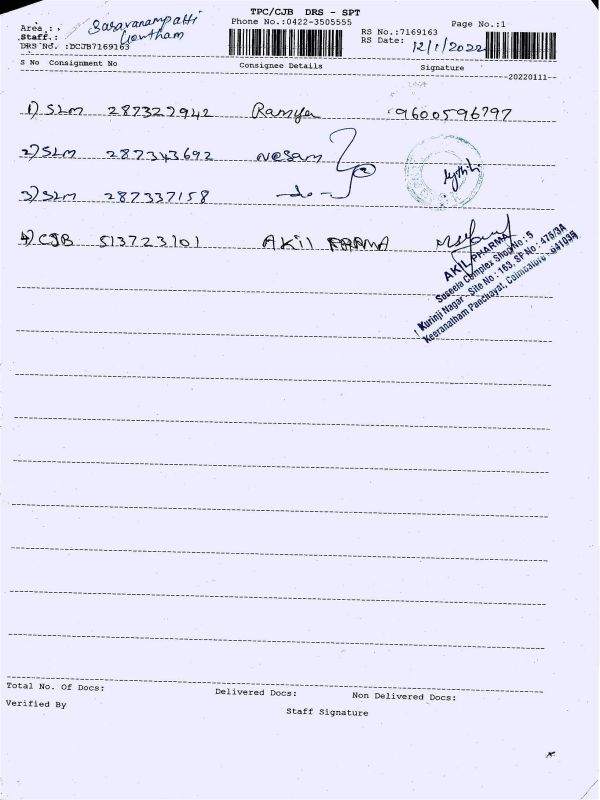 TPC/CJB DRS - SPT
Phone No.:0422-3505555
Page No.:1
Area : Saravanampatti
Staff.: Gowtham
DRS No. :DCJB7169163
RS No.:7169163
RS Date: 12/1/2022
S No Consignment No Consignee Details Signature
20220111
1) SLM 287329942 Ramya 9600596797
2) SLM 287343692 Nesam
3) SLM 287337158 -do-
4) CJB 513723101 AKIL PHARMA
AKIL PHARMA
Suseela Complex Shop No : 5
Kurinji Nagar - Site No : 163, SF No : 475/3A
Keeranatham Panchayat, Coimbatore - 641035
Total No. Of Docs: Delivered Docs: Non Delivered Docs:
Verified By
Staff Signature